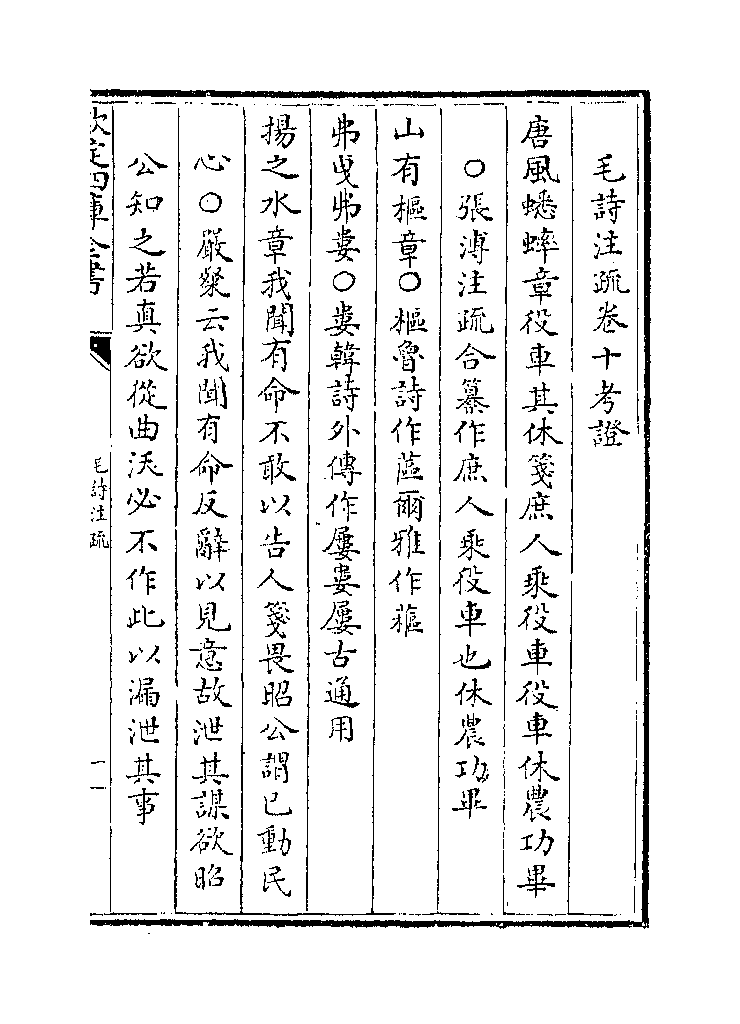 毛詩注疏卷十考證
唐風蟋蟀章役車其休箋庶人乘役車役車休農功畢
○張溥注疏合纂作庶人乘役車也休農功畢
山有樞章○樞魯詩作蓲爾雅作藲
弗曳弗婁○婁韓詩外傳作屢婁屢古通用
揚之水章我聞有命不敢以告人箋畏昭公謂已動民
心○嚴粲云我聞有命反辭以見意故泄其謀欲昭
公知之若真欲從曲沃必不作此以漏泄其事
欽定四庫全書
毛詩注疏
一